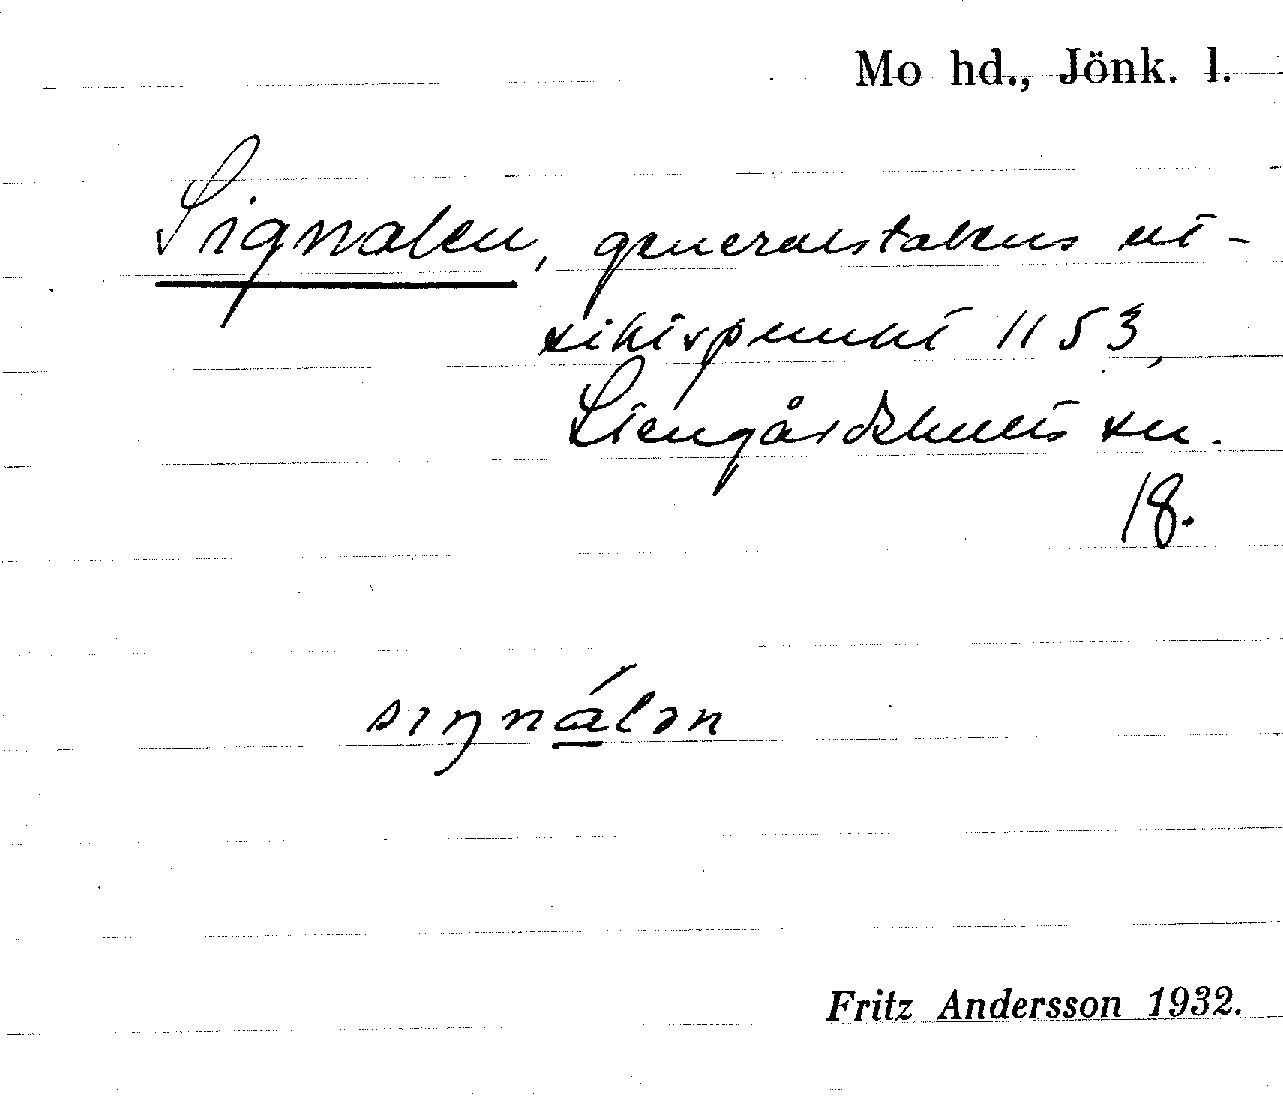 Mo hd., Jönk. l.
Signalen, generalstabens ut-
siktspunkt 1153,
Stengårdshults sn.
18.
sıŋnálən
Fritz Andersson 1932.